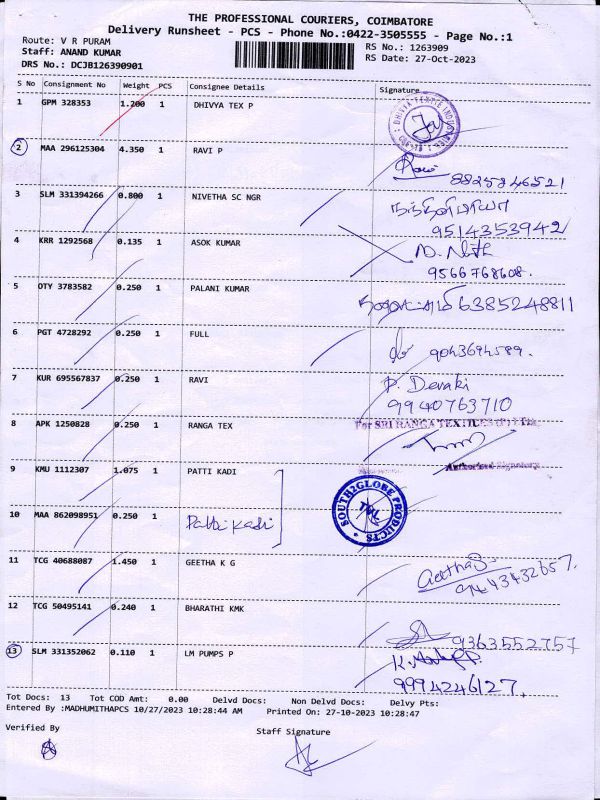 THE PROFESSIONAL COURIERS, COIMBATORE
Delivery Runsheet - PCS - Phone No.:0422-3505555 - Page No.:1
Route: V R PURAM
Staff: ANAND KUMAR
DRS No.: DCJB126390901
RS No.: 1263909
RS Date: 27-Oct-2023
S No Consignment No Weight PCS Consignee Details Signature
1 GPM 328353 1.200 1 DHIVYA TEX P
2 MAA 296125304 4.350 1 RAVI P
8825846521
3 SLM 331394266 0.800 1 NIVETHA SC NGR
9514353942
4 KRR 1292568 0.135 1 ASOK KUMAR
9566768608.
5 OTY 3783582 0.250 1 PALANI KUMAR 6385248811
6 PGT 4728292 0.250 1 FULL 9043694589.
7 KUR 695567837 0.250 1 RAVI P. Devaki
9940763710
8 APK 1250828 0.250 1 RANGA TEX For SRI RANGA TEXTILES (P) LTD.
Authorised Signatory
9 KMU 1112307 1.075 1 PATTI KADI
SOUTH2GLOBE PRODUCTS
10 MAA 862098951 0.250 1 Patti Kadi
11 TCG 40688087 1.450 1 GEETHA K G Geetha
9443432657.
12 TCG 50495141 0.240 1 BHARATHI KMK
9363552757
13 SLM 331352062 0.110 1 LM PUMPS P
9994246127.
Tot Docs: 13 Tot COD Amt: 0.00 Delvd Docs: Non Delvd Docs: Delvy Pts:
Entered By :MADHUMITHAPCS 10/27/2023 10:28:44 AM Printed On: 27-10-2023 10:28:47
Verified By
Staff Signature